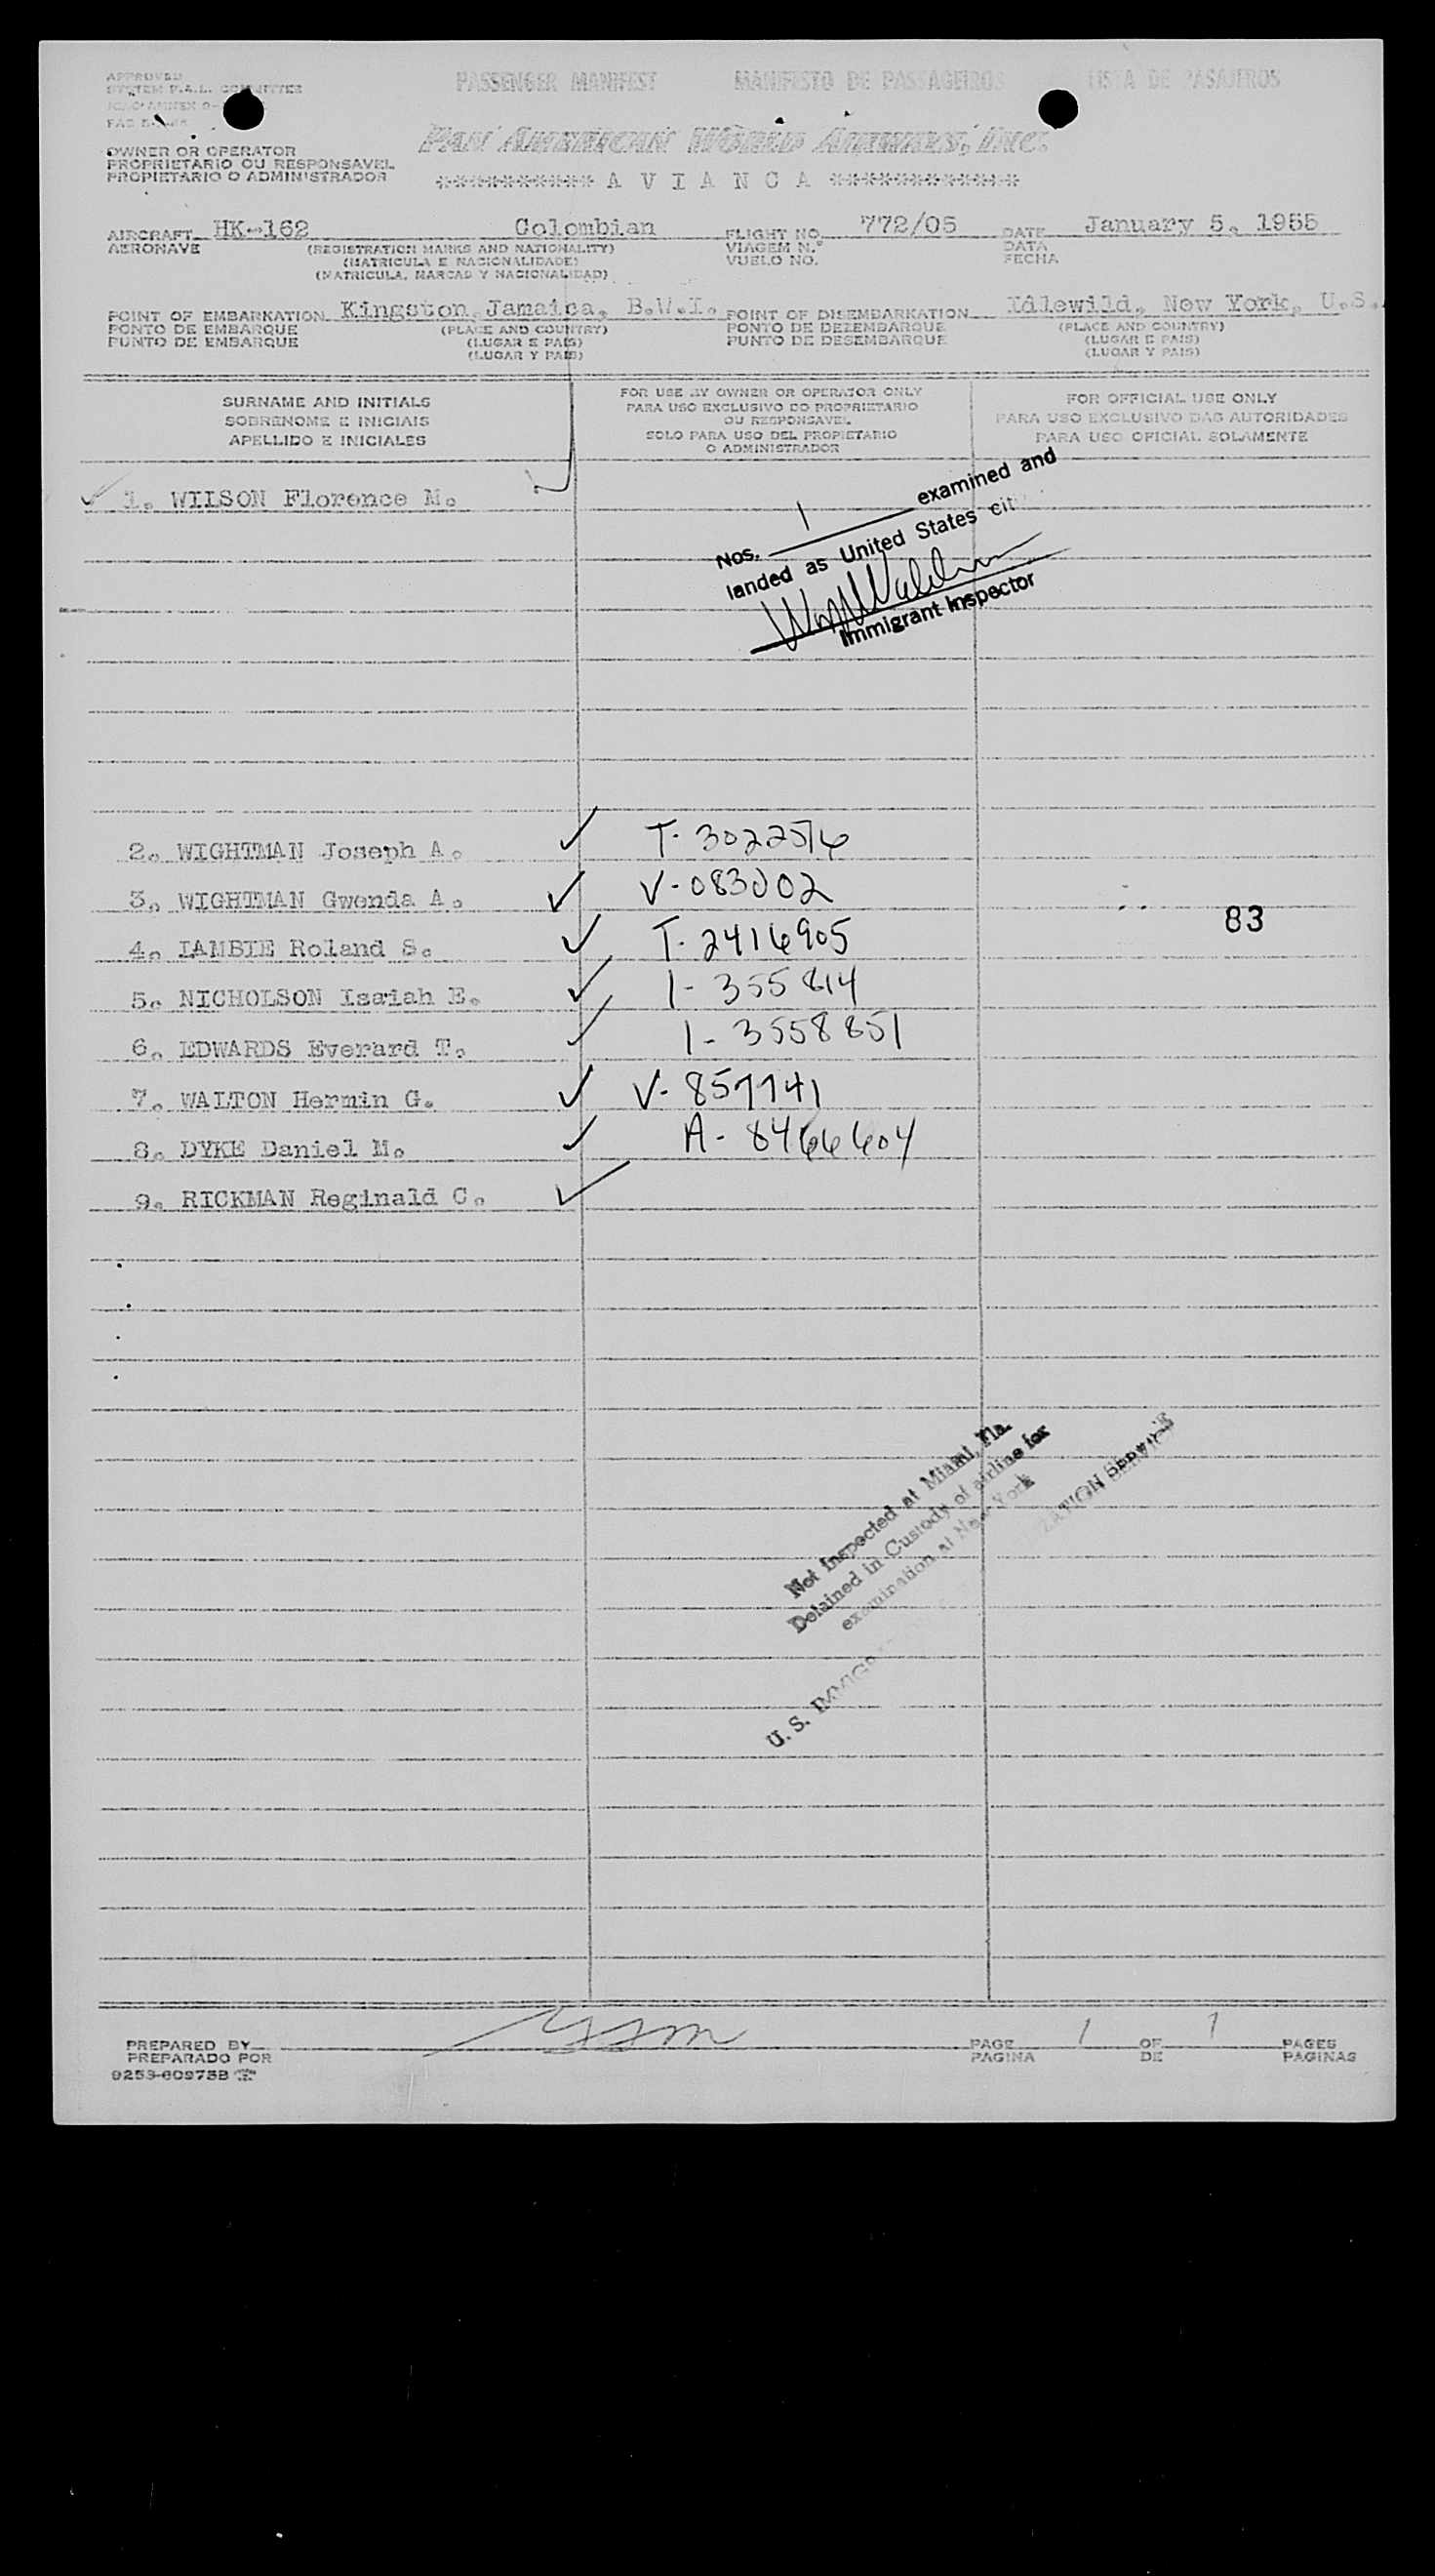 APPROVED
PASSENGER MANIFEST MANIFESTO DE PASSAGEIROS LISTA DE PASAJEROS
SYSTEM F.A.L. COMMITTEE
PAN AMERICAN WORLD AIRWAYS, INC.
OWNER OR OPERATOR
PROPRIETARIO OU RESPONSAVEL
PROPIETARIO O ADMINISTRADOR
*********** A V I A N C A *************
AIRCRAFT HK-162 Colombian FLIGHT NO. 772/05 DATE January 5, 1955
AERONAVE (REGISTRATION MARKS AND NATIONALITY) VIAGEM N.° DATA
(MATRICULA E NACIONALIDADE) VUELO NO. FECHA
(MATRICULA, MARCAS Y NACIONALIDAD)
POINT OF EMBARKATION Kingston, Jamaica, B.W.I. POINT OF DISEMBARKATION Idlewild, New York, U.S.
PONTO DE EMBARQUE (PLACE AND COUNTRY) PONTO DE DEZEMBARQUE (PLACE AND COUNTRY)
PUNTO DE EMBARQUE (LUGAR E PAIS) PUNTO DE DESEMBARQUE (LUGAR E PAIS)
(LUGAR Y PAIS) (LUGAR Y PAIS)
SURNAME AND INITIALS
SOBRENOME E INICIAIS
APELLIDO E INICIALES
FOR USE BY OWNER OR OPERATOR ONLY
PARA USO EXCLUSIVO DO PROPRIETARIO
OU RESPONSAVEL
SOLO PARA USO DEL PROPIETARIO
O ADMINISTRADOR
FOR OFFICIAL USE ONLY
PARA USO EXCLUSIVO DAS AUTORIDADES
PARA USO OFICIAL SOLAMENTE
✓ 1. WILSON Florence M.
Nos. 1 examined and
landed as United States cit
Immigrant Inspector
2. WIGHTMAN Joseph A. ✓ T-3022576
3. WIGHTMAN Gwenda A. ✓ V-083002
83
4. LAMBIE Roland S. ✓ T-2416905
5. NICHOLSON Isaiah E. ✓ 1-355814
6. EDWARDS Everard T. ✓ 1-3558851
7. WALTON Hermin G. ✓ V-857741
8. DYKE Daniel M. ✓ A-8466604
9. RICKMAN Reginald C. ✓
Not Inspected at Miami, Fla.
Detained in Custody of airline for
examination at New York
U. S. IMMIGR ZATION SERVICE
PREPARED BY PAGE 1 OF 1 PAGES
PREPARADO POR PAGINA DE PAGINAS